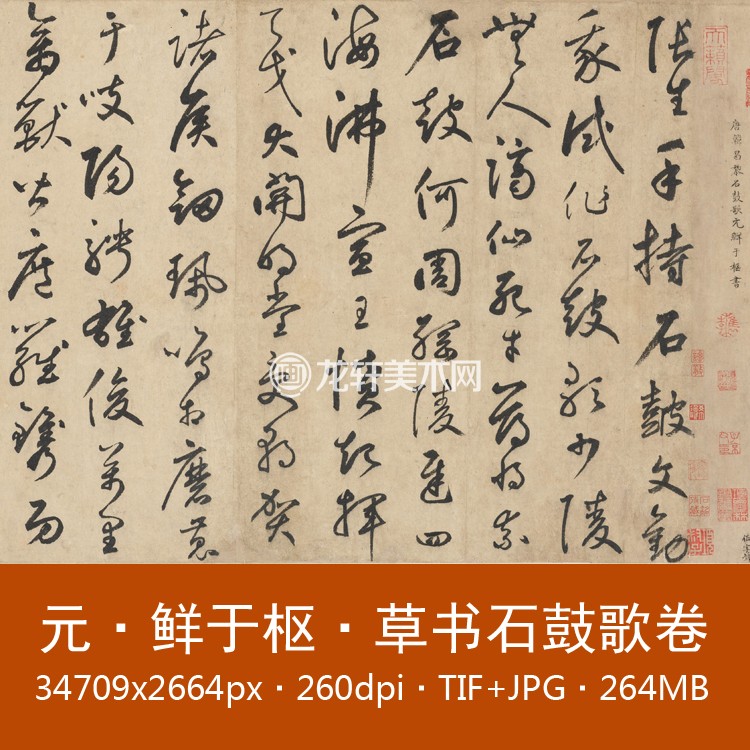 唐韓昌黎石鼓歌元鮮于樞書
張生手持石鼓文勸
我試作石鼓歌少陵
無人謫仙死才薄將奈
石鼓何周綱陵遲四
海沸宣王憤起揮
天戈大開明堂受朝賀
諸侯劍珮鳴相磨蒐
于岐陽騁雄俊萬里
禽獸皆遮羅鐫功
龙轩美术网
元·鲜于枢·草书石鼓歌卷
34709x2664px·260dpi·TIF+JPG·264MB